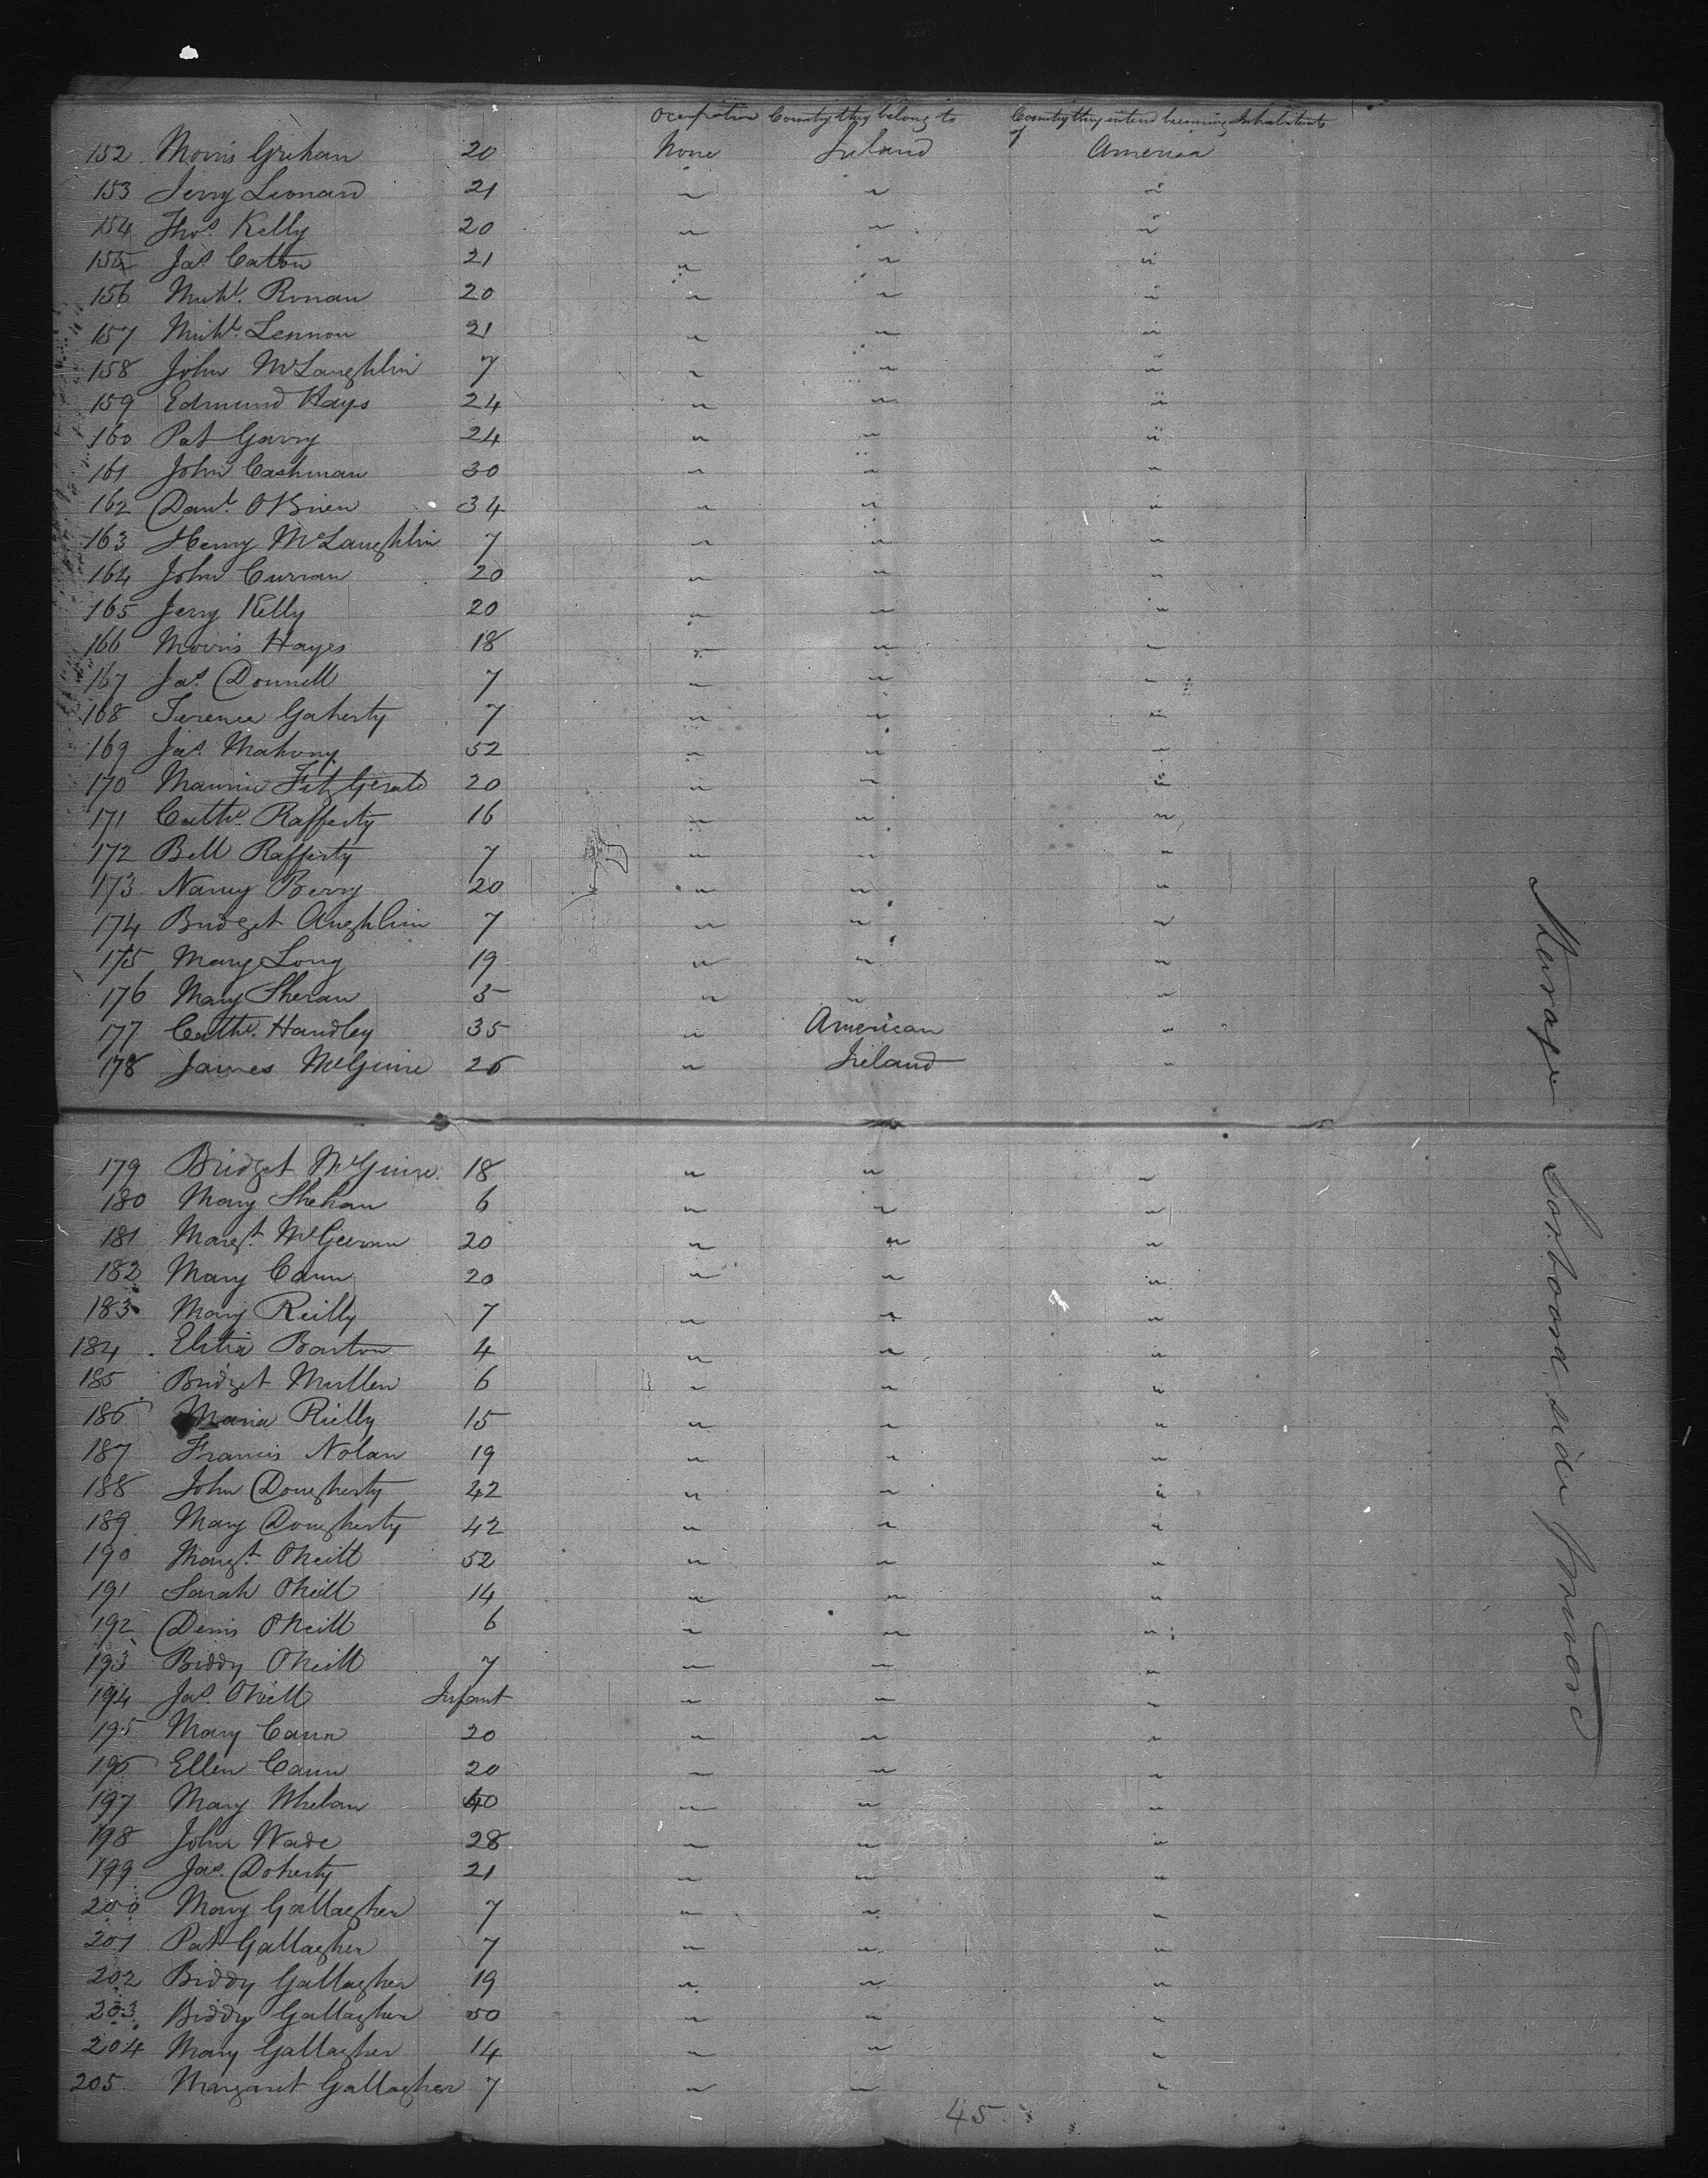 Occupation Country they belong to Country they intend becoming Inhabitants of
152 Morris Grehan 20 None Ireland America
153 Jerry Leonard 21 " " "
154 Thos. Kelly 20 " " "
155 Jas. Caton 21 " " "
156 Michl. Ronan 20 " " "
157 Michl. Lennon 21 " " "
158 John McLaughlin 7 " " "
159 Edmund Hays 24 " " "
160 Pat Garry 24 " " "
161 John Cashman 30 " " "
162 Danl. OBrien 34 " " "
163 Henry McLaughlin 7 " " "
164 John Curran 20 " " "
165 Jerry Kelly 20 " " "
166 Morris Hayes 18 " " "
167 Jas. Donnell 7 " " "
168 Terence Gaherty 7 " " "
169 Jas. Mahony 52 " " "
170 Maurice FitzGerald 20 " " "
171 Cathe. Rafferty 16 " " "
172 Bell Rafferty 7 " " "
173 Nancy Berry 20 " " "
174 Bridget Aughlin 7 " " "
175 Mary Long 19 " " "
176 Mary Sheran 5 " " "
177 Cathe. Handley 35 " American "
178 James McGuire 26 " Ireland "
179 Bridget McGuire 18 " " "
180 Mary Shehan 6 " " "
181 Margt. 20 " " "
182 Mary Cann 20 " " "
183 Mary Reilly 7 " " "
184 Barton 4 " " "
185 Bridget Mullen 6 " " "
186 Maria Rielly 15 " " "
187 Francis Nolan 19 " " "
188 John Dougherty 42 " " "
189 Mary Dougherty 42 " " "
190 Margt. ONeill 52 " " "
191 Sarah ONeill 14 " " "
192 Denis ONeill 6 " " "
193 Biddy ONeill 7 " " "
194 Jas. ONeill Infant " " "
195 Mary Cann 20 " " "
196 Ellen Cann 20 " " "
197 Mary Whelan 40 " " "
198 John Wade 28 " " "
199 Jas. Doherty 21 " " "
200 Mary Gallagher 7 " " "
201 Pat Gallagher 7 " " "
202 Biddy Gallagher 19 " " "
203 Biddy Gallagher 50 " " "
204 Mary Gallagher 14 " " "
205 Margaret Gallagher 7 " " "
45
Steerage Starboard side forward